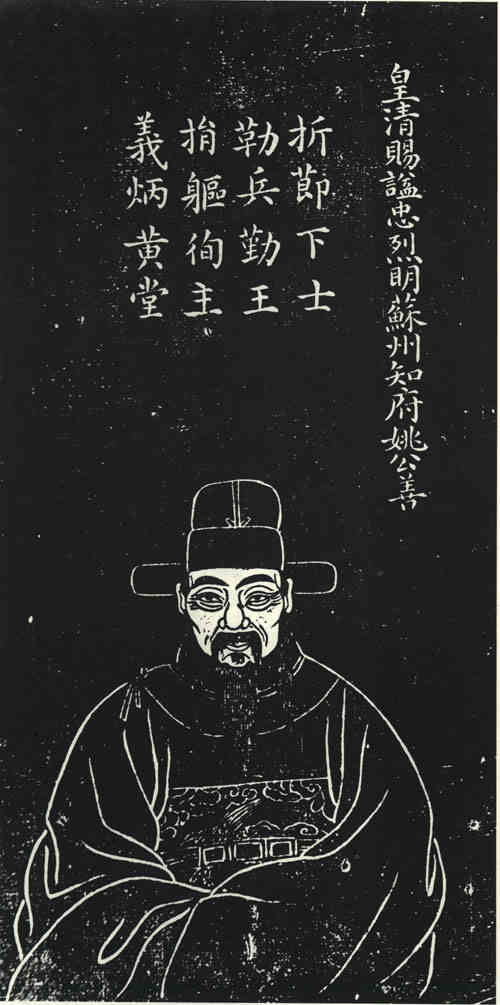 皇清賜諡忠烈明蘇州知府姚公善
折節下士
勒兵勤王
捐軀徇主
義炳黄堂